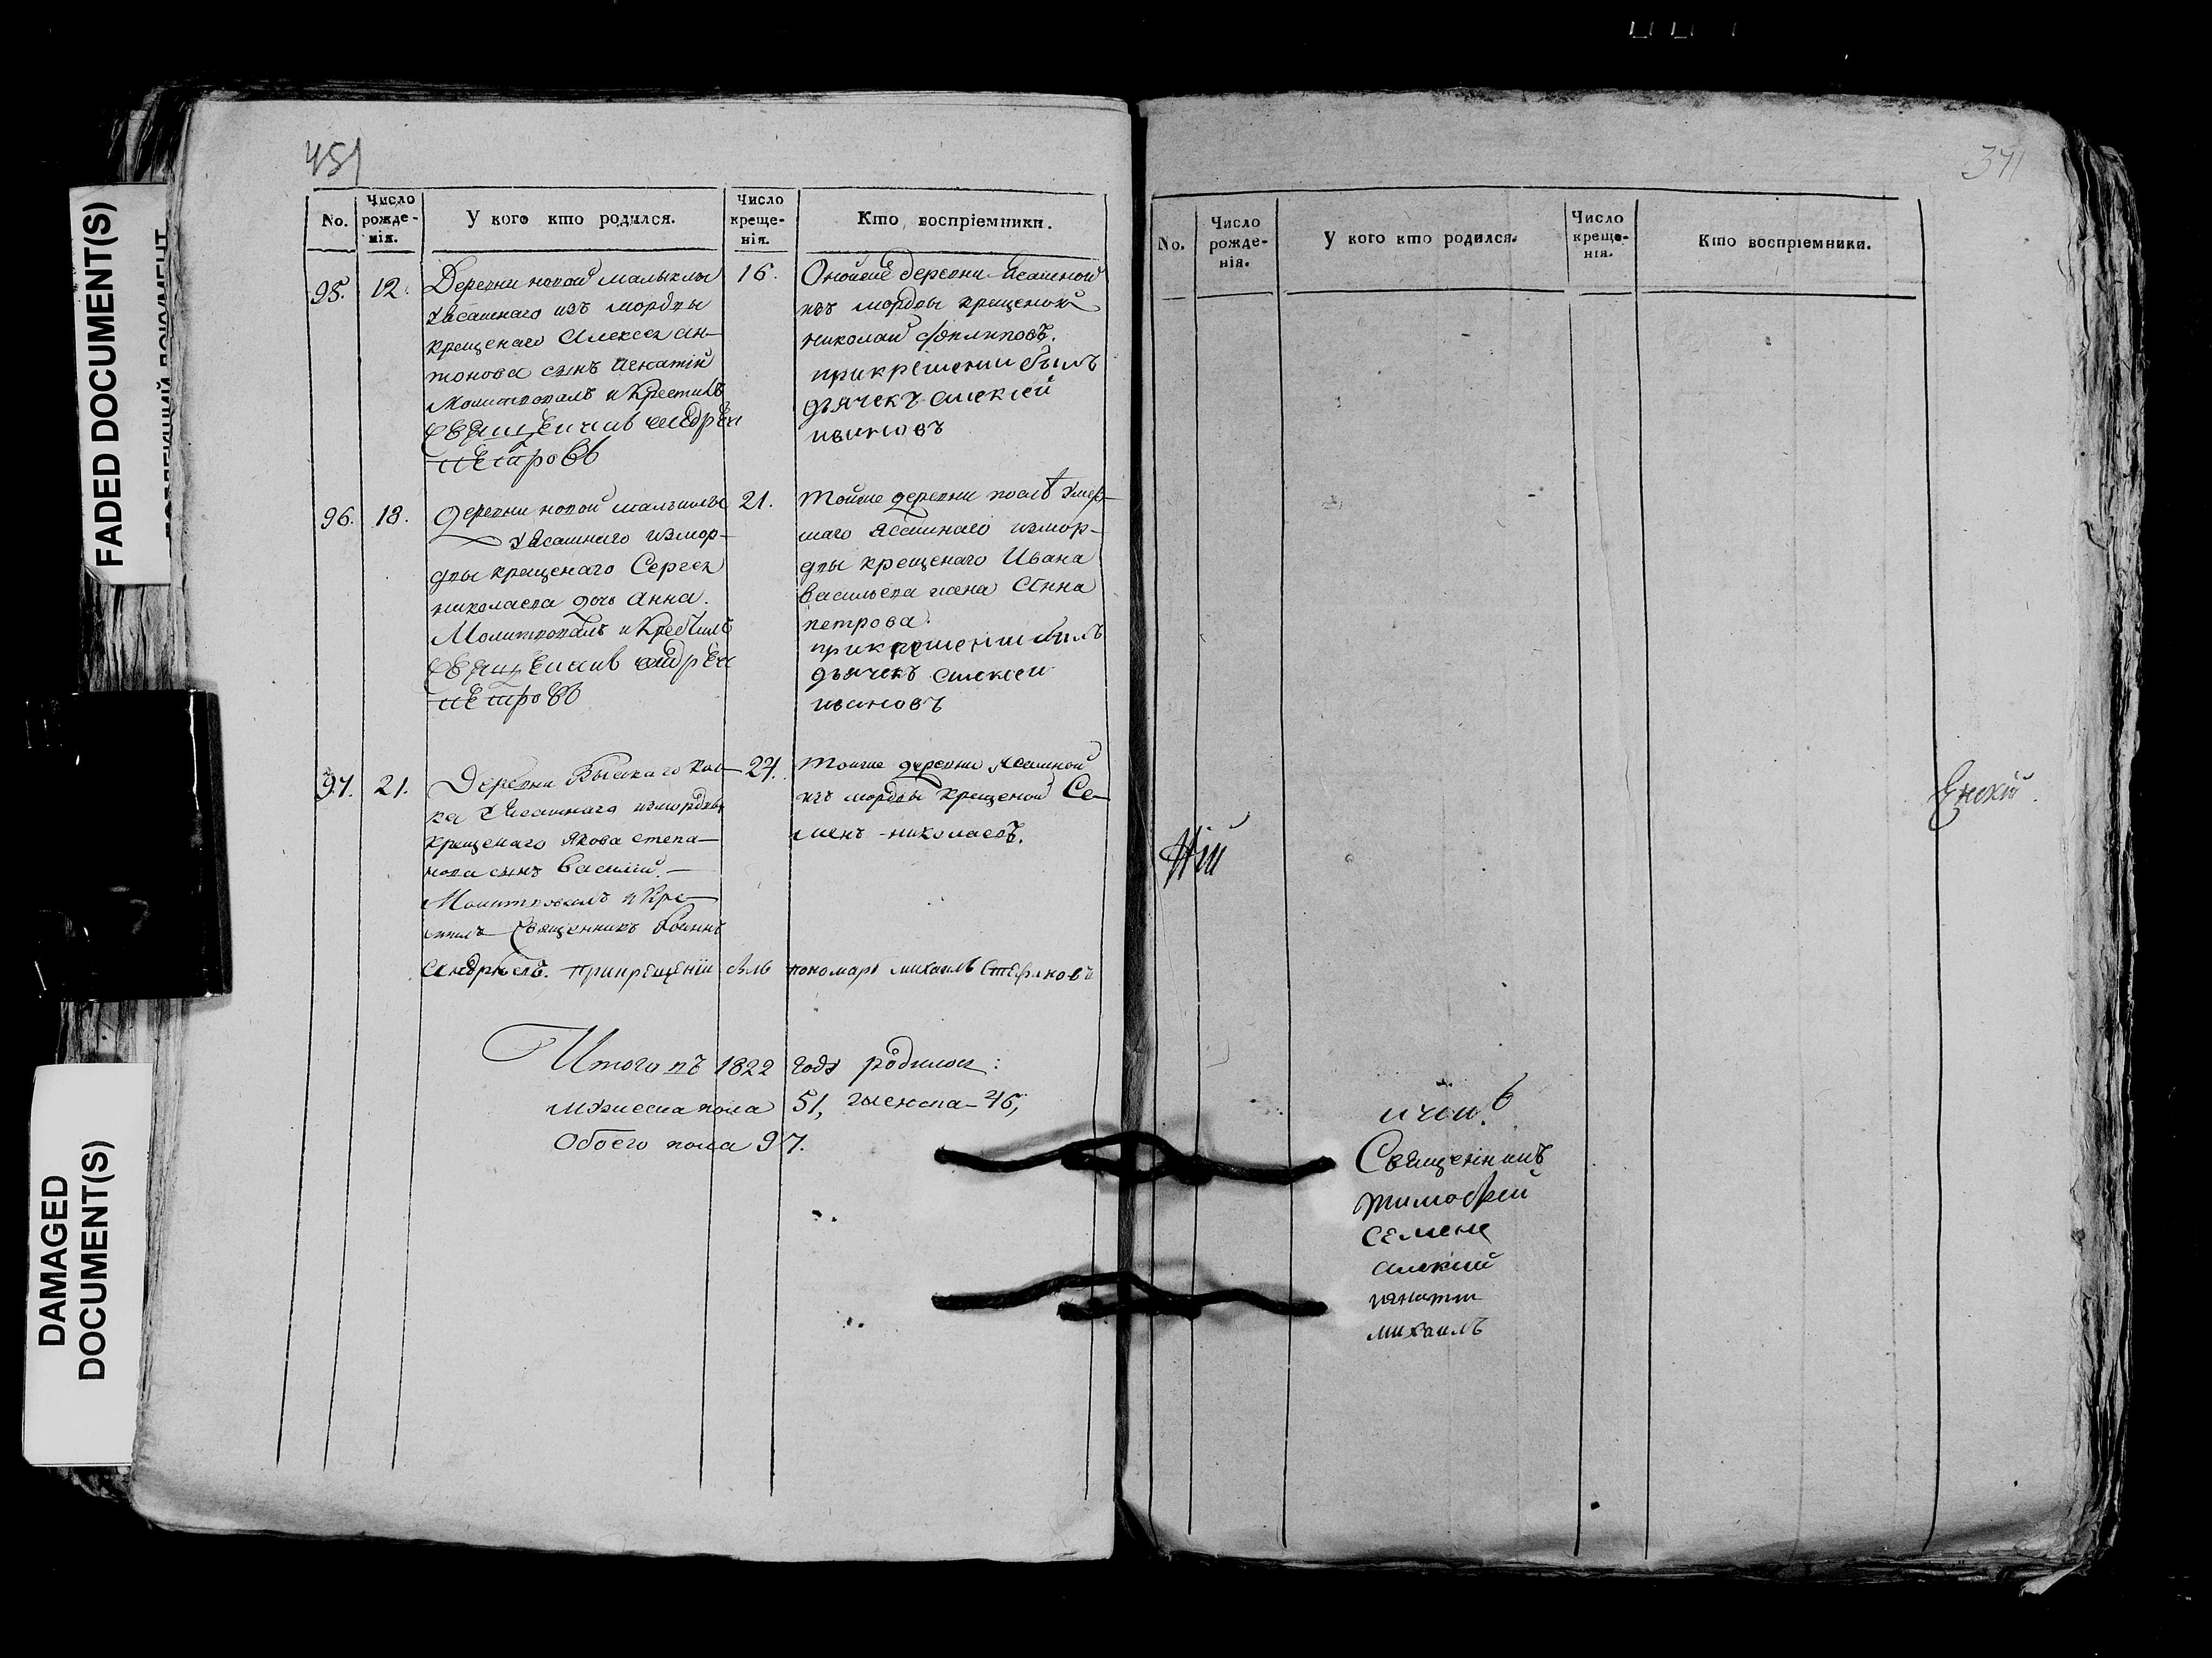 451
No.
Число рожде-нія.
У кого кто родился.
Число креще-нія.
Кто воспріемники.
95.
12.
Деревни новой малыклы
ясашнаго изъ мордвы
крещенаго Алексея ан-
тонова сынъ игнатій
Молитвовалъ и Крестилъ
священникъ андрей
петровъ
16.
Оной же деревни ясашной
изъ мордвы крещеной
николай филиповъ.
прикрещении былъ
дьячекъ алексей
ивановъ
96.
18.
деревни новой малыклы
ясашнаго измор-
двы крещенаго Сергея
николаева дочь анна.
Молитвовалъ и Крестилъ
священникъ андрей
петровъ
21.
тойже деревни послѣ умер-
шаго ясашнаго измор-
двы крещенаго Ивана
васильева жена Анна
петрова.
прикрещении былъ
дьячекъ алексей
ивановъ
97.
21.
Деревни
ясашнаго измордвы
крещенаго якова степа-
нова сынъ василій.
Молитвовалъ и Кре-
стилъ священникъ Іоаннъ
андреевъ. прикрещеніи былъ пономарь михаилъ стефановъ
24.
тойже деревни ясашной
изъ мордвы крещеной Се-
менъ николаевъ.
Итого въ 1822 годѣ родилось:
мужеска пола 51, женска 46,
Обоего пола 97.
FADED DOCUMENT(S)
DAMAGED
DOCUMENT(S)
371
No.
Число рожде-нія.
У кого кто родился.
Число креще-нія.
Кто воспріемники.
Священникъ
тимофей
семенъ
алексей
игнатій
михаилъ